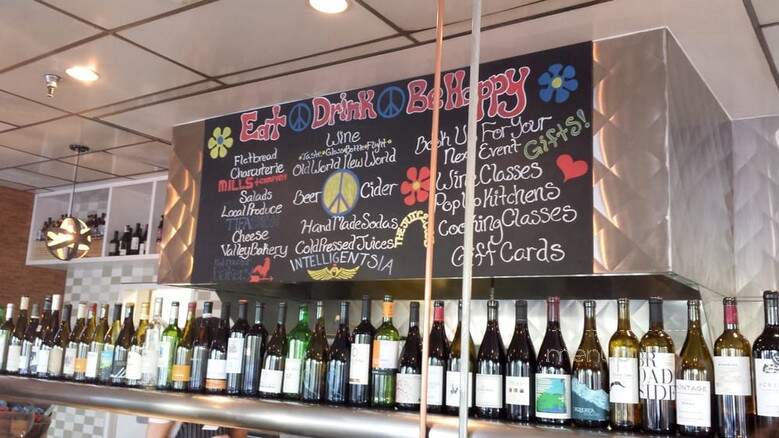 Eat Drink Be Happy
Flatbread
Charcuterie
MILLS
Salads
Local Produce
TEA
Cheese
Valley Bakery
Wine
Taste Glass Bottle Flight
Old World New World
Beer Cider
Hand Made Sodas
Cold Pressed Juices
INTELLIGENTSIA
THE JUICE
Book Us For Your
Next Event
Gifts!
Wine Classes
Pop Up Kitchens
Cooking Classes
Gift Cards
menu